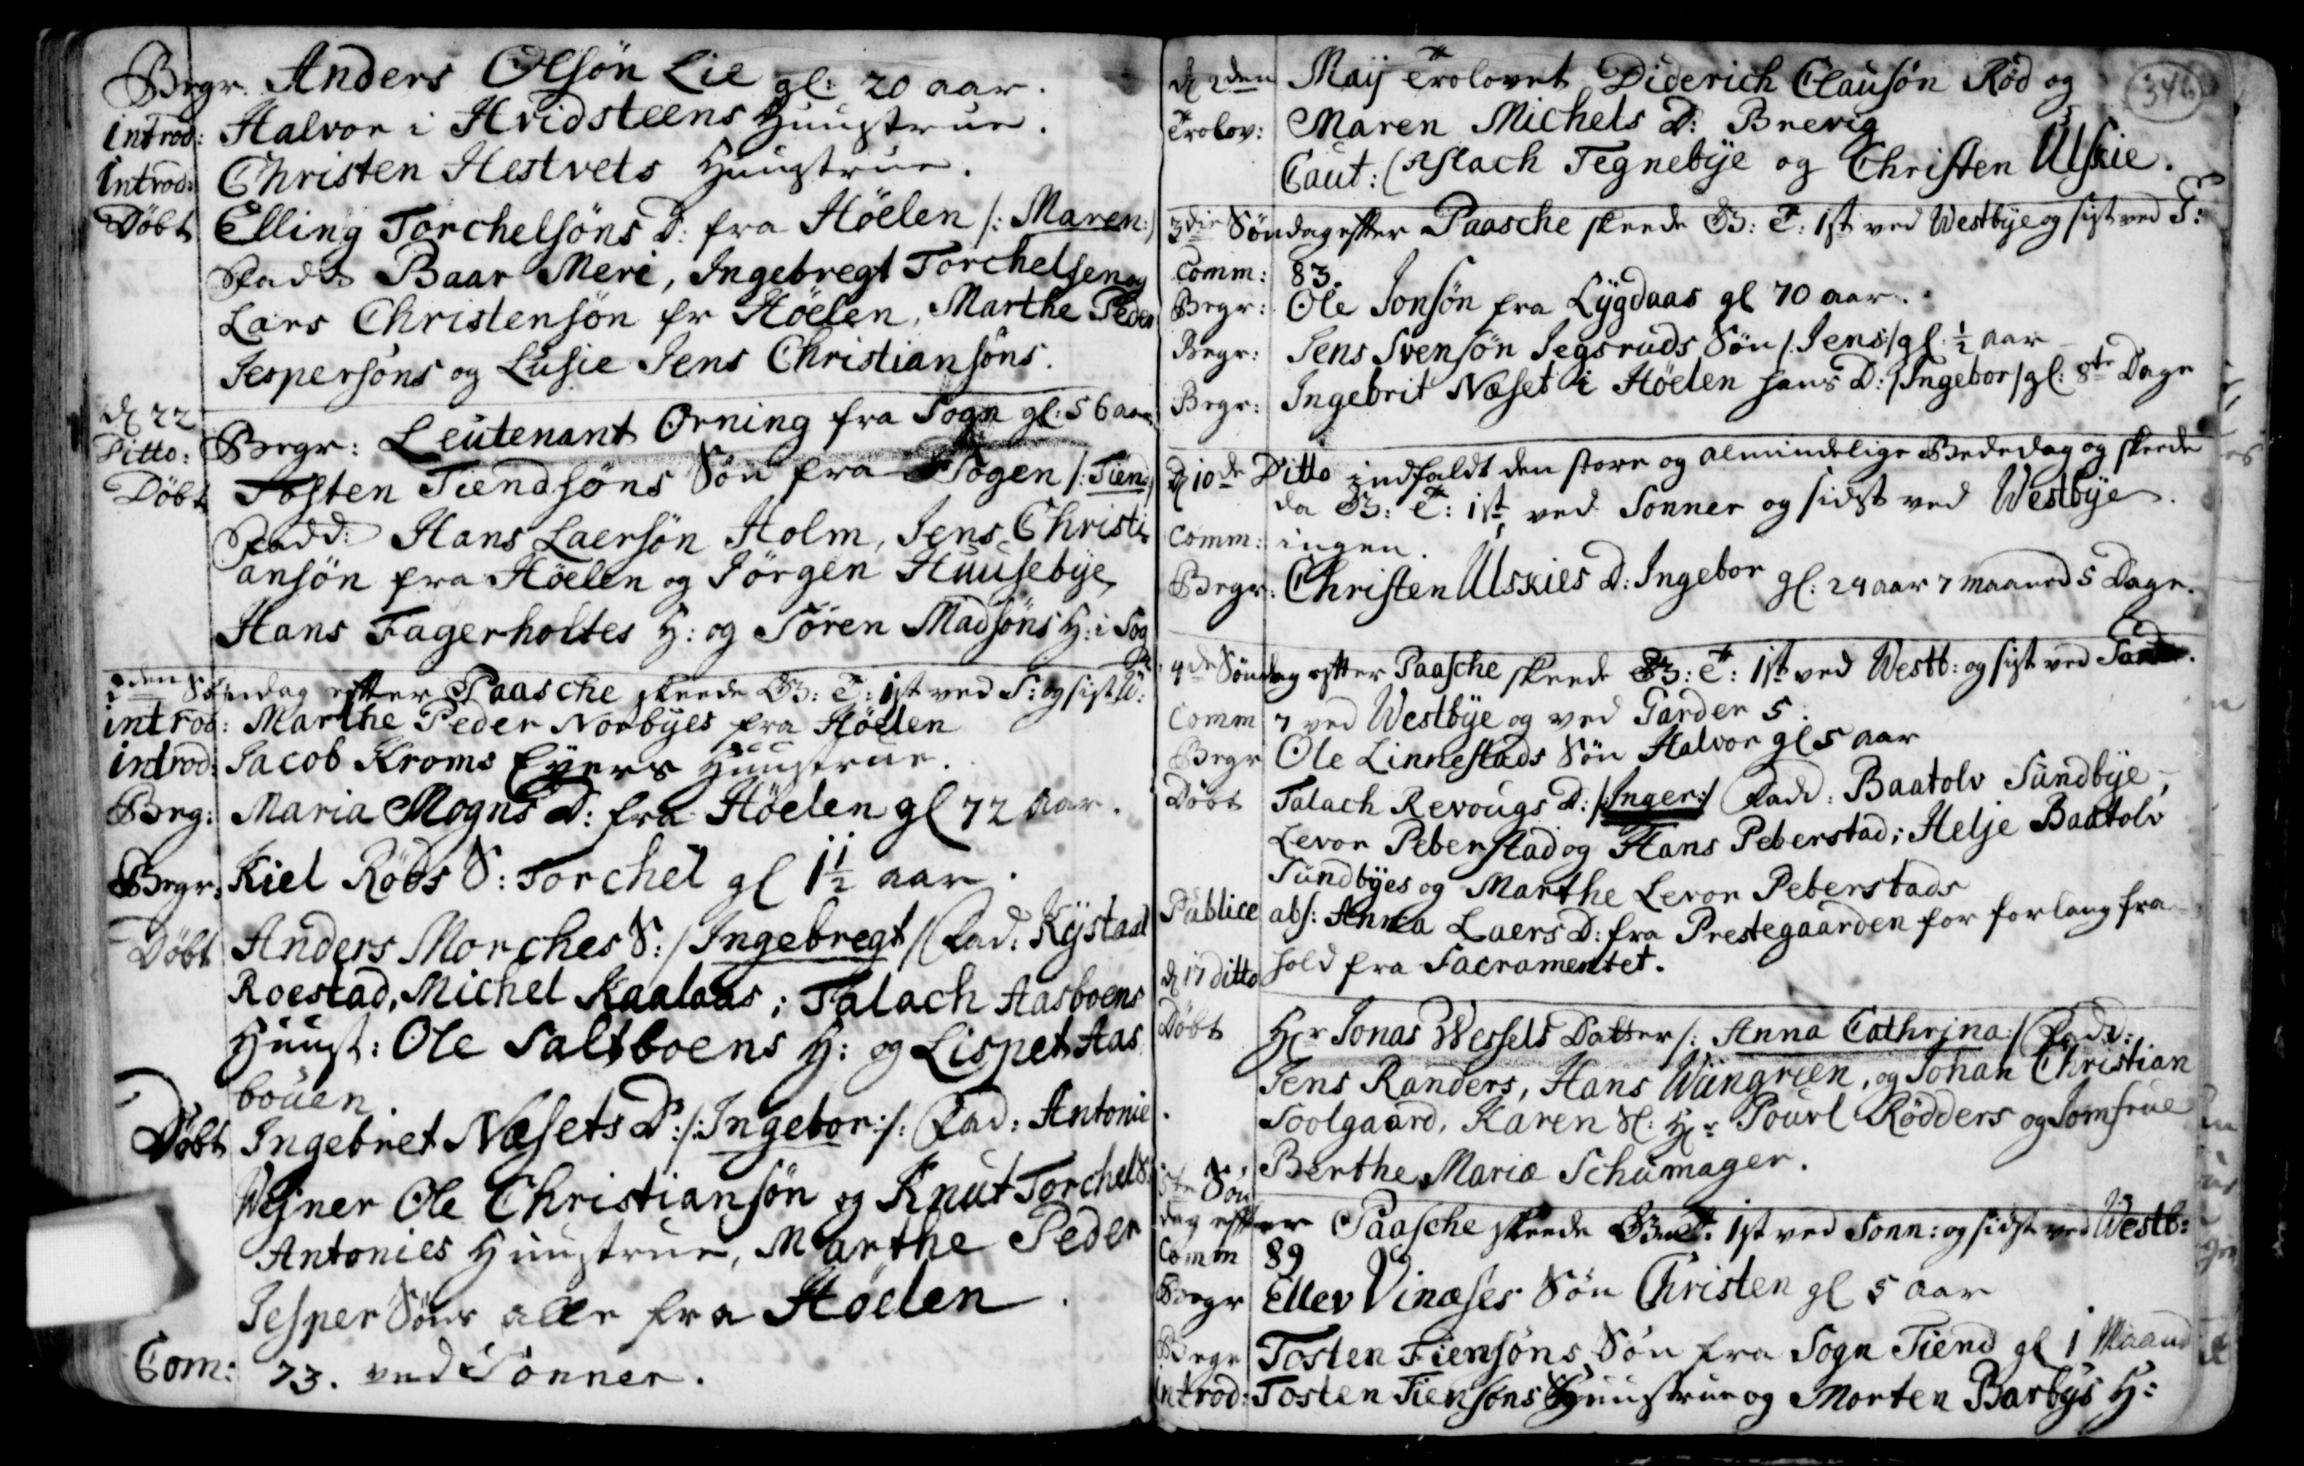 Begr. Anders Olsön Lie gl: 20 aar.
Introd: Halvor i Hvidsteens Huustrue.
Introd: Christen Hestvets Huustrue.
Döbt Elling Torchelsöns D: fra Höelen /: Maren:/
Fadd Baar Meri, Ingebregt Torchelsen og
Lars Christensön fr Höelen, Marthe Peder
Jespersöns og Lusie Jens Christiansöns.
d 22
Ditto: Begr: Leutenant Orning fra Sogn gl: 56 aar
Döbt Tosten Tiendsöns Sön fra Sogen /: Tiend
Fadd: Hans Laersön Holm, Jens Christi
ansön fra Höelen og Jörgen Huusebye,
Hans Fagerholtes H: og Sören Madsöns H: i Sog
2den Söndag efter Paasche skeede G: T: 1st ved S: og sist W:
introd: Marthe Peder Norbyes fra Höelen
introd: Jacob Kroms Eyers Huustrue.
Beg: Maria Mogns D: fra Höelen gl 72 aar.
Begr: Kiel Röds S: Torchel gl 1½ aar.
Döbt Anders Morches S: /Ingebregt/ Fad: Kystad
Roestad, Michel Kaalaas; Talach Aasboens
Huust: Ole Saltboens H: og Lispet Aas
bouen.
Döbt Ingebret Næsets D:/: Ingebor:/: Fad: Antonie
Wejner Ole Christiansön og Knut Torchels:
Antonies Huustrue, Marthe Peder
Jesper Söns alle fra Höelen.
Com: 73. ved Sonner.
346
d 2den Maij Trolovet Diderich Clausön Röd og
Trolov: Maren Michels D: Brevig
Caut: Aslach Tegnebye og Christen Ulskie.
3die Söndag efter Paasche skeede G: T: 1st ved Westbye og sist ved S:
Comm: 83.
Begr: Ole Jonsön fra Lygdaas gl 70 aar.
Begr: Jens Svensön Jegsruds Sön /: Jens:/ gl. ½ aar
Begr: Ingebrit Næset i Höelen hans D: /Ingebor/ gl: 8te Dage
d 10de Ditto indfaldt den store og almindelige Bededag og skeede
da G: T: 1st ved Sonner og sidst ved Westbye.
Comm: ingen.
Begr: Christen Ulskies D: Ingebor gl: 24 aar 7 maaned 5 Dage.
4de Söndag efter Paasche skeede G: T: 1st ved Westb: og sist ved Garder.
Comm 7 ved Westbye og ved Garder 5:
Begr Ole Linnestads Sön Halvor gl 5 aar
Döbt Talach Revougs D: /:Inger:/ Fadd: Baatolv Sundbye,
Levor Peberstad og Hans Peberstad; Helje Baatolv
Sundbyes og Marthe Levor Peberstads
Publice abs: Anna Laers D: fra Prestegaarden for forlang fra
hold fra Sacramentet.
d 17 ditto
Döbt Hr Jonas Wessels Datter /: Anna Cathrina:/ Fadd:
Jens Randers, Hans Wungreen, og Johan Christian
Soolgaard, Karen Sl: Hr Pourl Rödders og Jomfrue
Berthe Maria Schumager.
5te Sön
dag efter Paasche skeede G: T: 1st ved Sonn: og sidst ved Westb:
Comm 89
Begr Ellev Vinæses Sön Christen gl 5 aar
Begr Tosten Tiensöns Sön fra Sogn Tiend gl 1 Maaned
introd: Tosten Tiensöns Huustrue og Morten Barbys H: